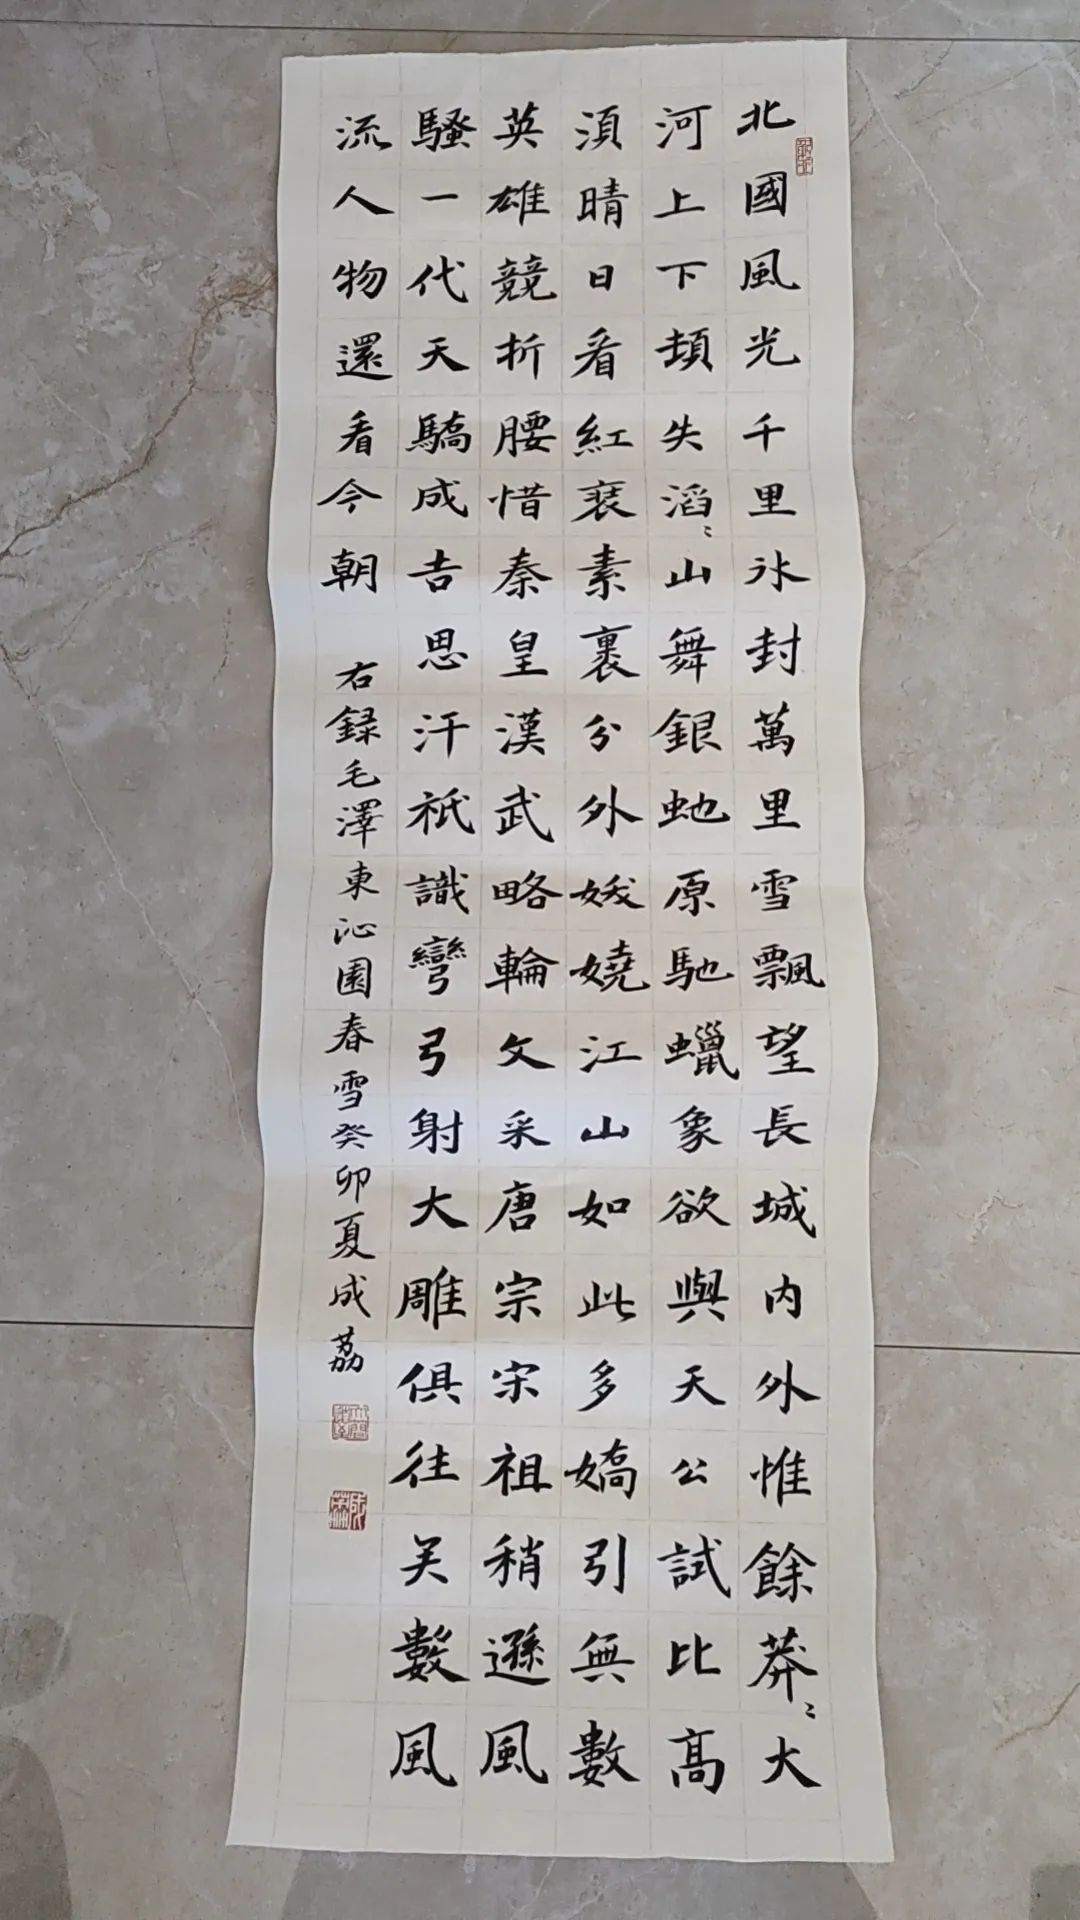 北國風光千里冰封萬里雪飄望長城内外惟餘莽〻大
河上下頓失滔〻山舞銀虵原馳蠟象欲與天公試比髙
湏晴日看紅裝素裹分外妖嬈江山如此多嬌引無數
英雄競折腰惜秦皇漢武略輪文采唐宗宋祖稍遜風
騷一代天驕成吉思汗祇識彎弓射大雕俱往矣數風
流人物還看今朝
右録毛澤東沁園春雪癸卯夏成荔